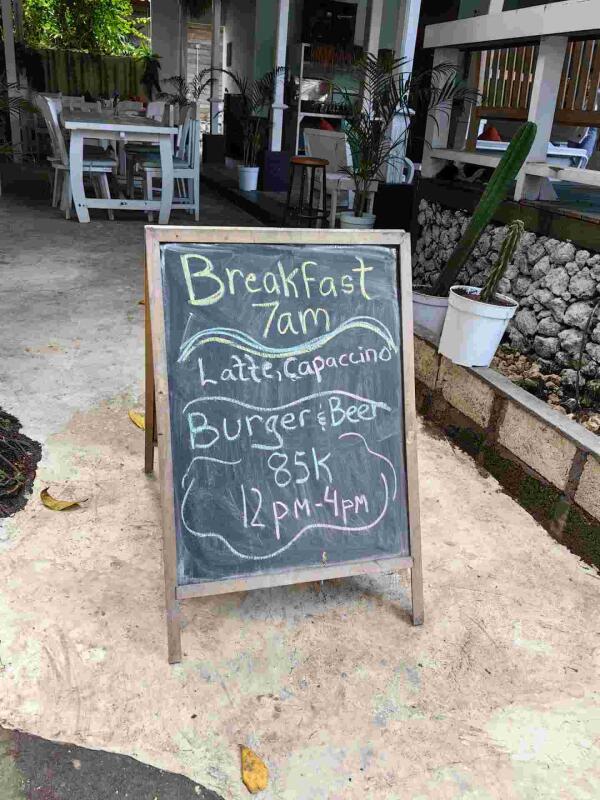 Breakfast
7am
Latte, Capaccino
Burger & Beer
85K
12pm-4pm